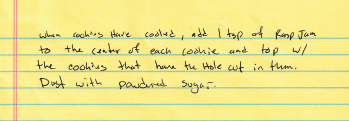 when cookies Have cooled, add 1 tsp of Rasp Jam
to the center of each cookie and top w/
the cookies that have the Hole cut in them.
Dust with powdered sugar.